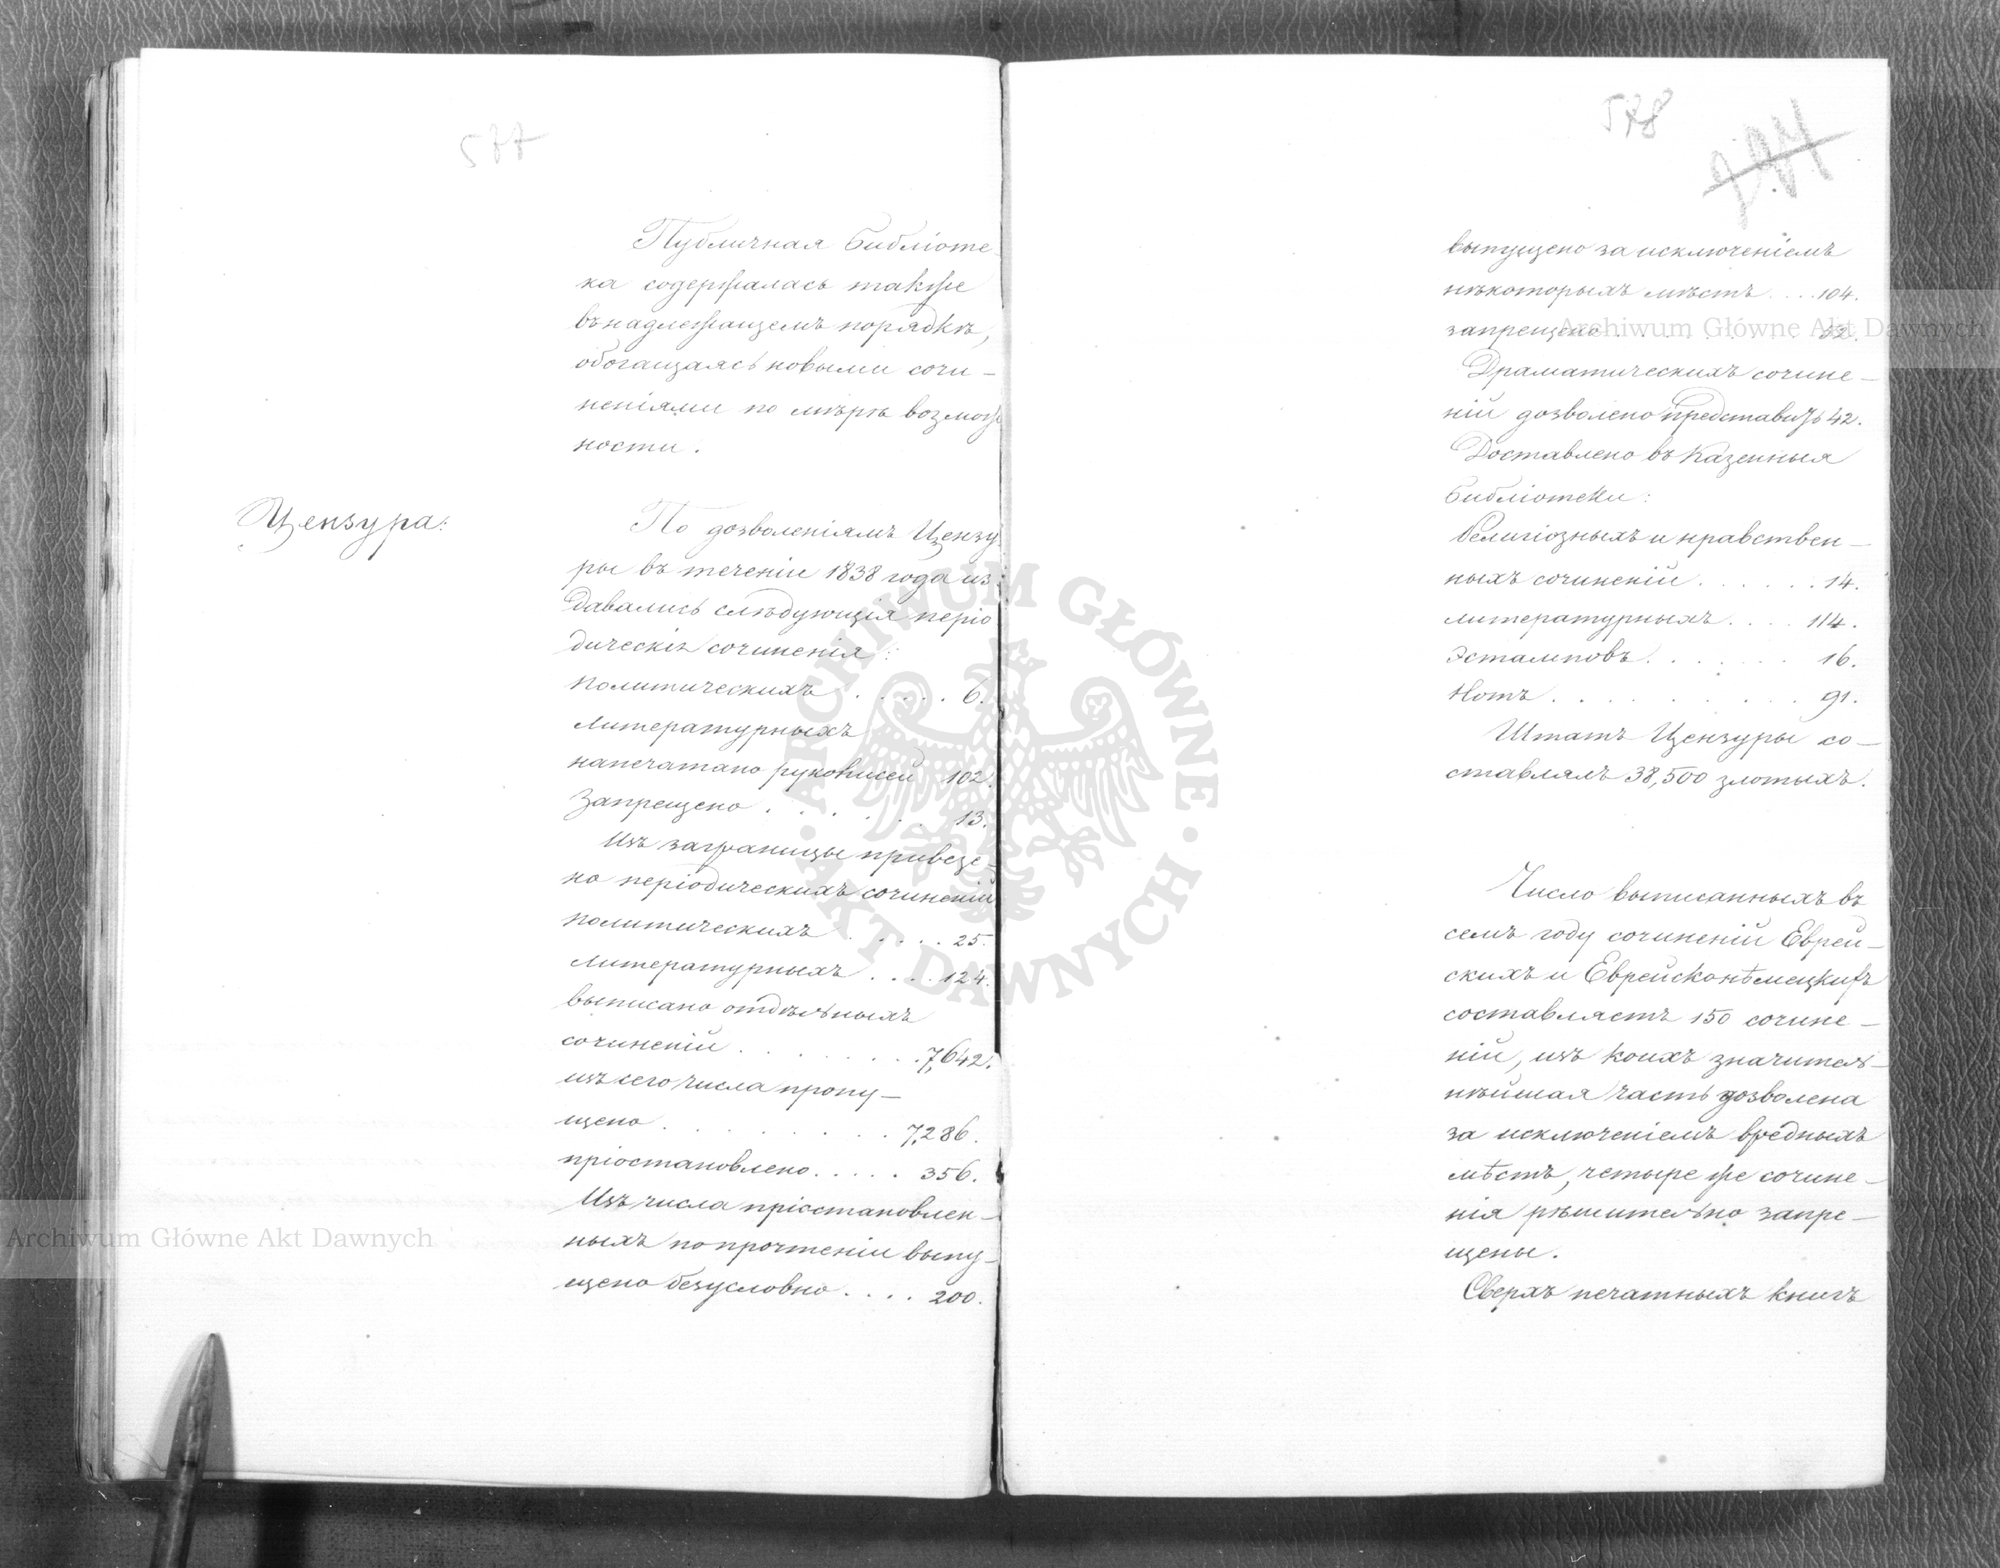 577
Публичная Библіоте-
ка содержалась также
въ надлежащемъ порядкѣ,
обогащаясь новыми сочи-
неніями по мѣрѣ возмож
ности.
Цензура:
По дозволеніямъ Цензу
ры въ теченіи 1838 года из:
давались слѣдующія періо
дическія сочиненія:
политическихъ ..... 6.
литературныхъ
напечатано рукописей 102.
Запрещено ...... 13.
Изъ заграницы привезе-
но періодическихъ сочиненій
политическихъ ..... 25.
литературныхъ .... 124.
выписано отдѣльныхъ
сочиненій ........ 7,642.
изъ сего числа пропу-
щено ......... 7,286.
пріостановлено ..... 356.
Изъ числа пріостановлен-
ныхъ по прочтеніи выпу-
щено безусловно .... 200.
578
выпущено за исключеніемъ
нѣкоторыхъ мѣстъ .... 104.
запрещено ........ 52.
Драматическихъ сочине-
ній дозволено представить 42.
Доставлено въ Казенныя
Библіотеки:
Религіозныхъ и нравствен-
ныхъ сочиненій ...... 14.
литературныхъ .... 114.
Эстамповъ ....... 16.
Нотъ .......... 91.
Штатъ Цензуры со-
ставлялъ 38,500 злотыхъ.
Число выписанныхъ въ
семъ году сочиненій Еврей-
скихъ и Еврейсконѣмецкихъ
составляетъ 150 сочине-
ній, изъ коихъ значитель-
нѣйшая часть дозволена
за исключеніемъ вредныхъ
мѣстъ, четыре же сочине-
нія рѣшительно запре-
щены.
Сверхъ печатныхъ книгъ
Archiwum Główne Akt Dawnych
Archiwum Główne Akt Dawnych
ARCHIWUM GŁÓWNE
AKT DAWNYCH